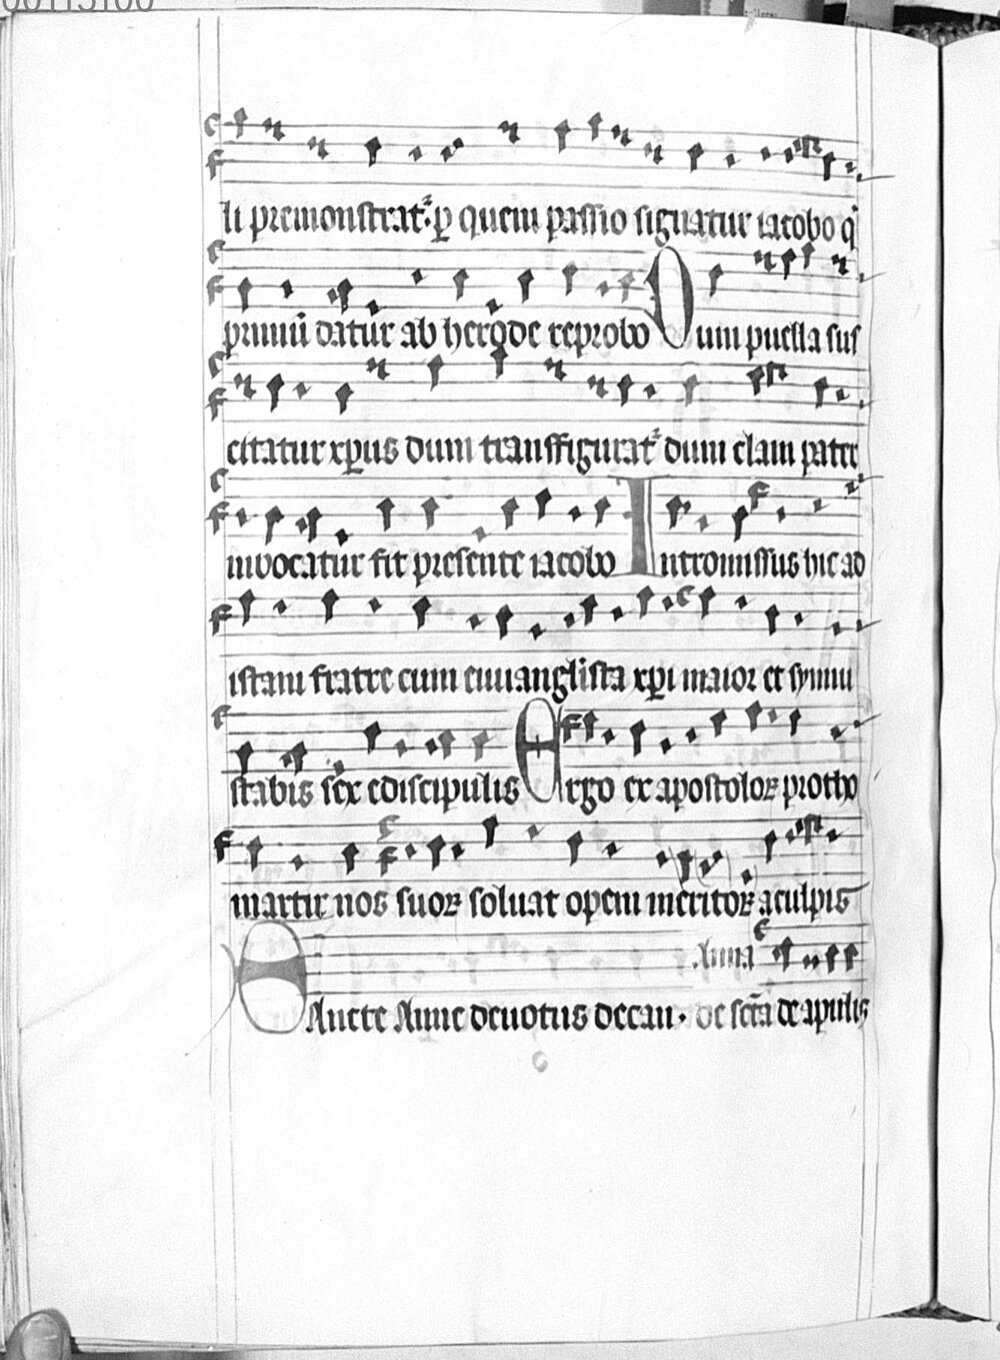 li premonstrat᷑ ꝑ quem passio signatur iacobo q̇
primū datur ab herode reprobo Dum puella sus
citatur xp̄us dum transffigurat᷑ dum clam pater
invocatur fit presente iacobo Intromissus hic ad
istam fratre cum ewangl̄ista xp̄i maior et symni
stabis sex ediscipulis Ergo ex apostoloꝝ protho
martir nos suoꝝ soluat opem meritoꝝ aculpis
Anna
Ancte Anne deuotus decan. de sc̄ta de apulis